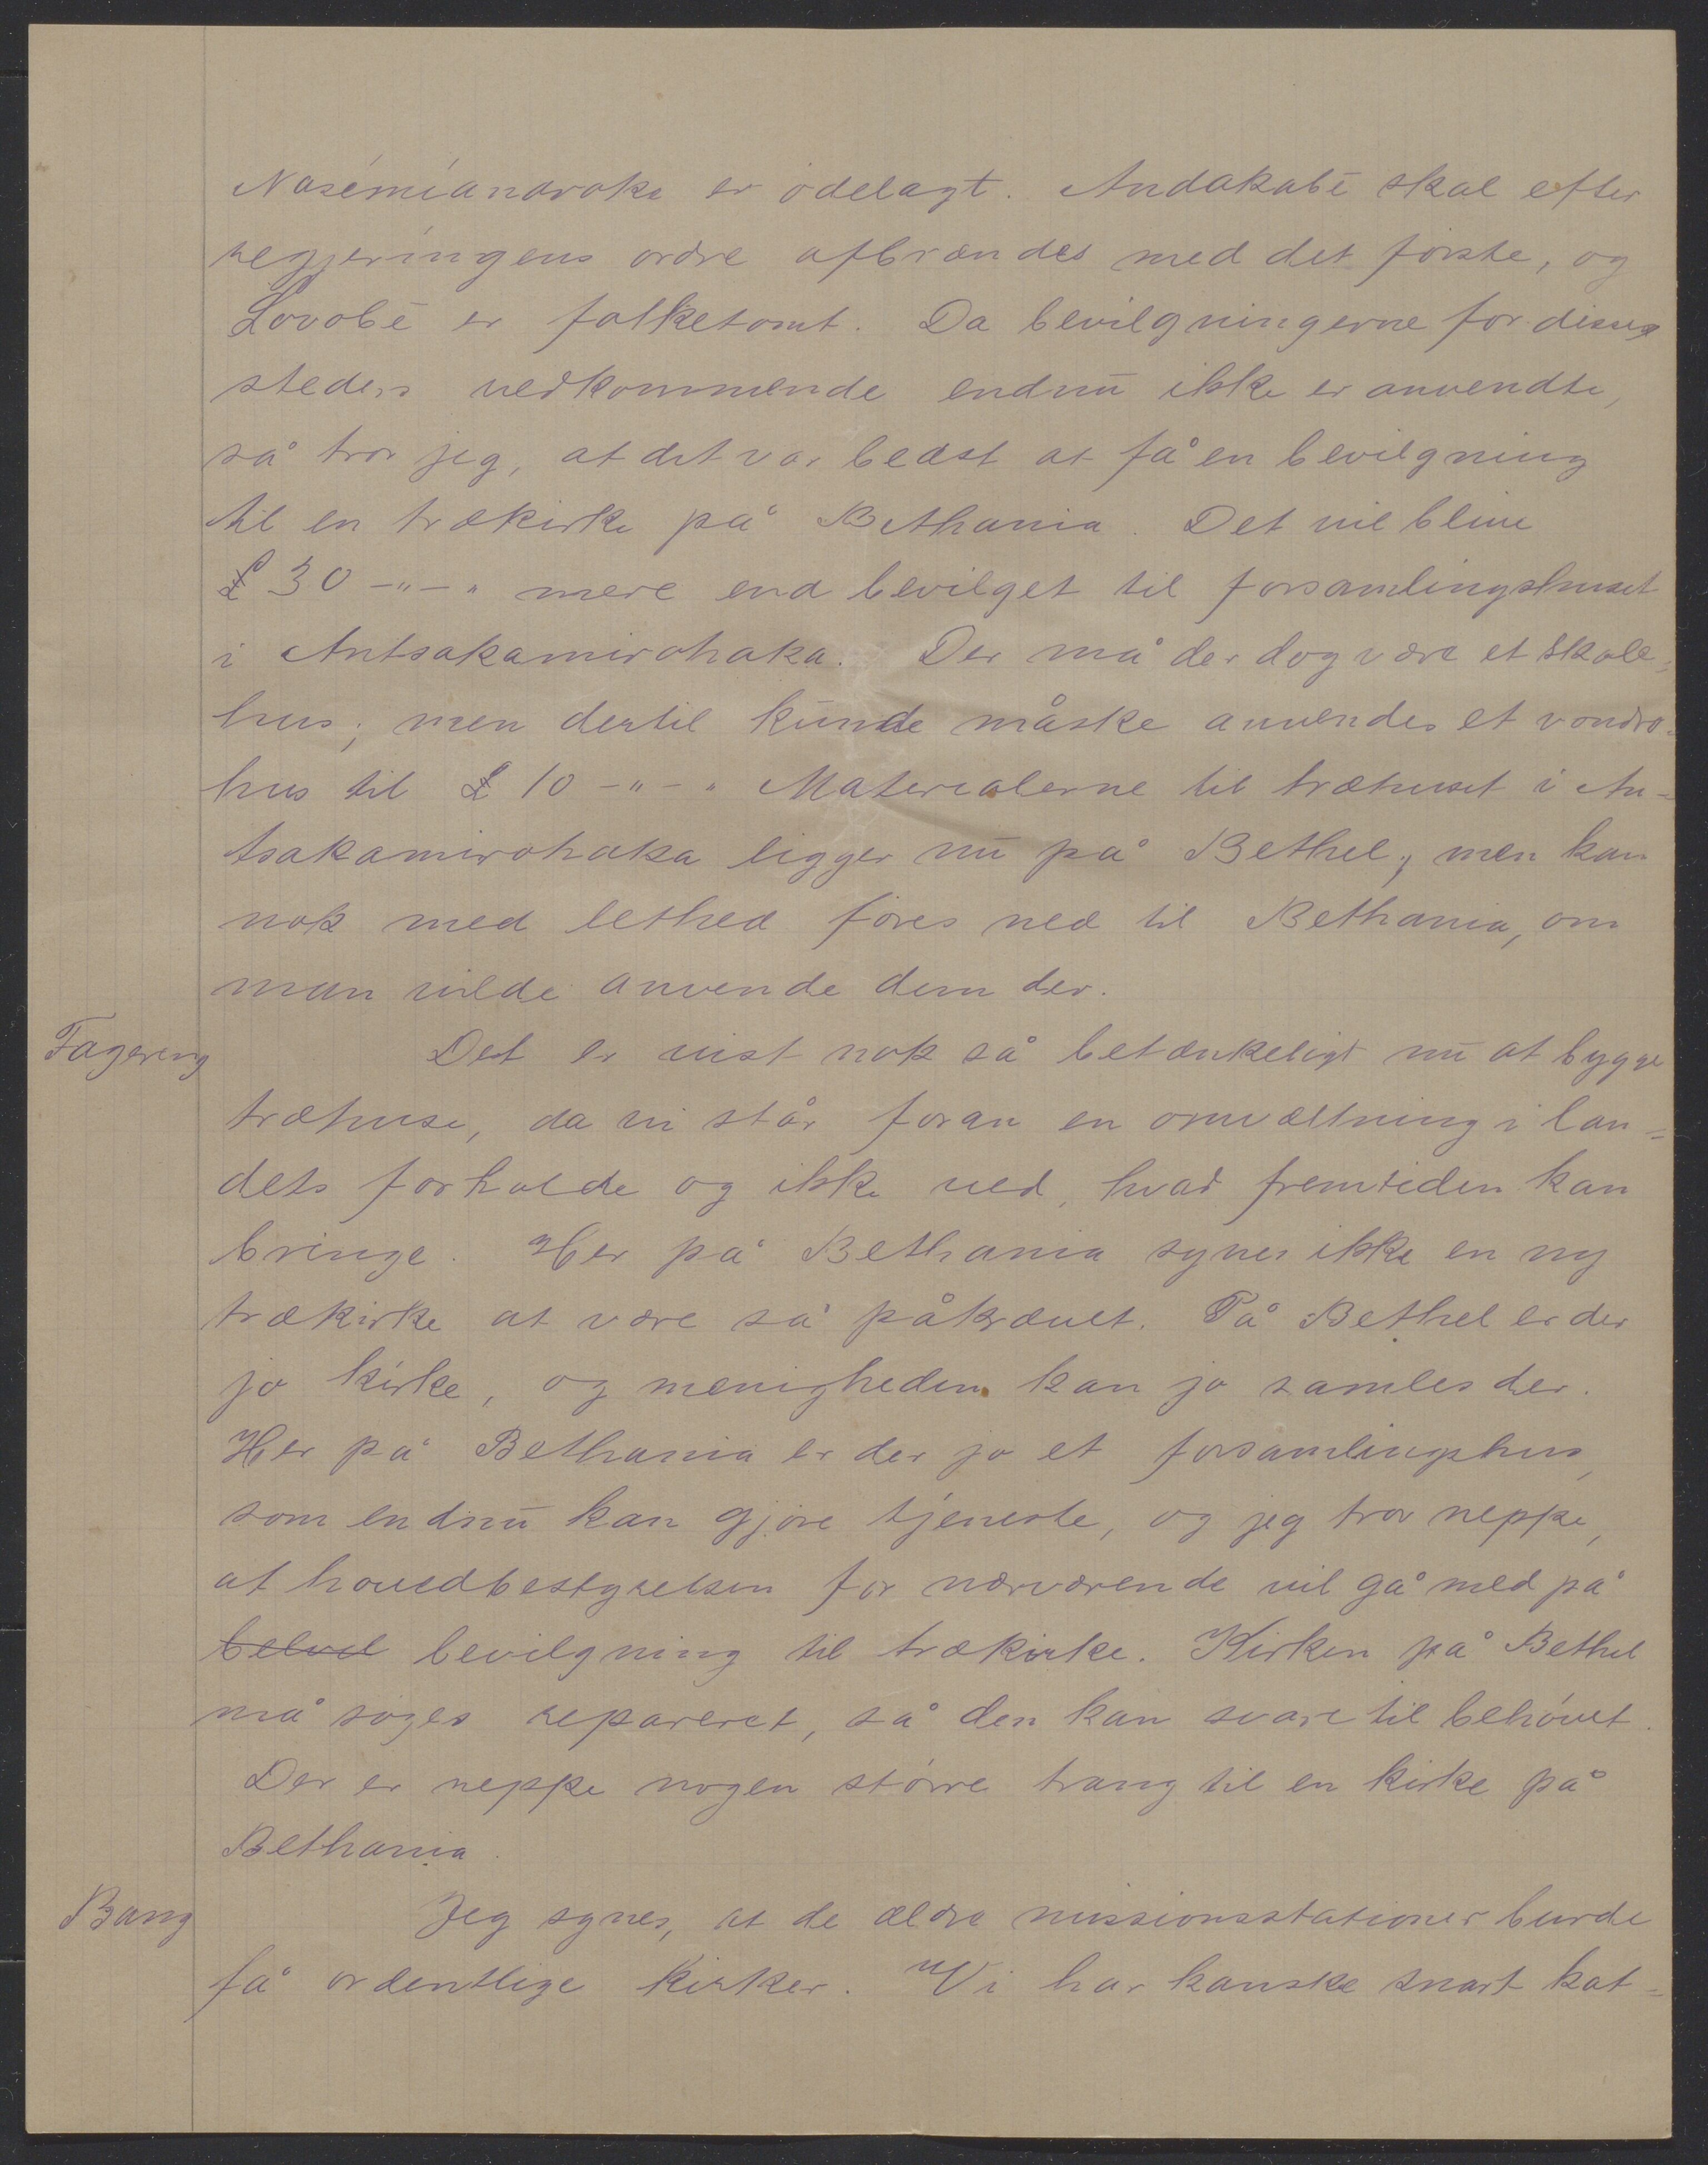 Nasémiandroka er ódelagt. Andakabē skal efter
regjeringens ordre afbrændes med det förste, og
Lovobē er folketomt. Da bevilgningerne for disse
steders vedkommende endnū ikke er anvendte,
så tror jeg, at det var bedst at få en bevilgning
til en trækirke på Bethania. Det vil blive
£ 30 -"-" mere end bevilget til forsamlingshuset
i Antsakamirohaka. Der må der dog være et skole=
hus; men dertil kunde måske anvendes et vondro=
hus til £ 10 -"-" Materialerne til træhuset i An=
tsakamirohaka ligger nū på Bethel, men kan
nok med lethed föres ned til Bethania, om
man vilde anvende dem der.
Fagereng
Det er vist nok så betænkeligt nū at bygge
træhuse, da vi står foran en omvæltning i lan=
dets forholde og ikke ved, hvad fremtiden kan
bringe. Her på Bethania synes ikke en ny
trækirke at være så påkrævet. På Bethel er der
jo kirke, og menigheden kan jo samles der.
Her på Bethania er der jo et forsamlingshus,
som endnū kan gjöre tjeneste, og jeg tror neppe,
at hovedbestyrelsen for nærværende vil gå med på
belvil bevilgning til trækirke. Kirken på Bethel
må söges repareret, så den kan svare til behóvet.
Der er neppe nogen större trang til en kirke på
Bethania.
Bang
Jeg synes, at de ældre missionsstationer burde
få ordentlige kirker. Vi har kanske snart kat=